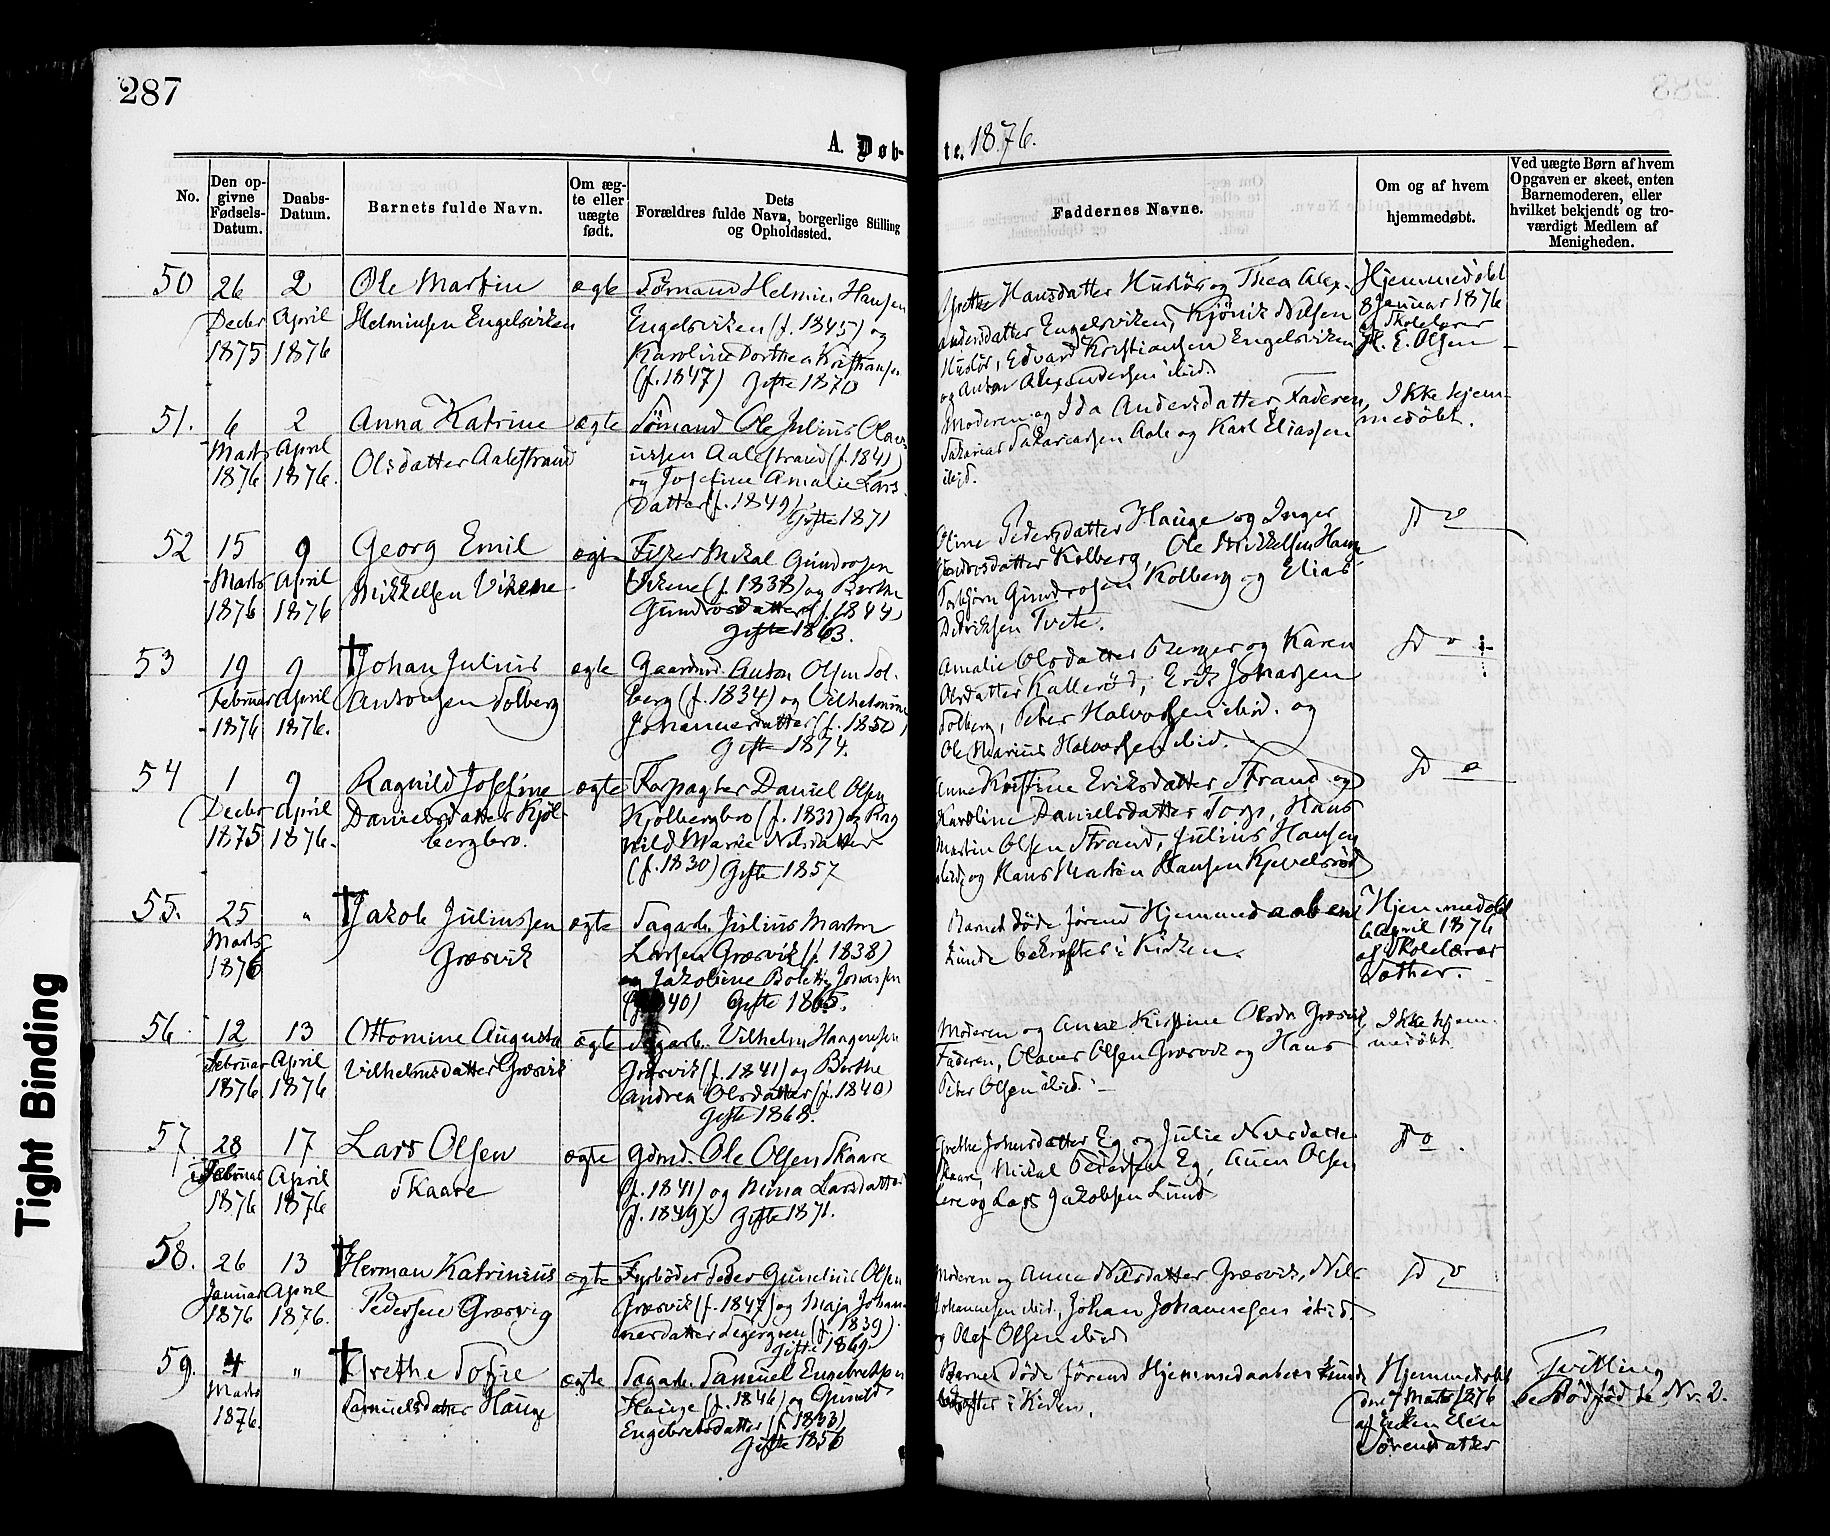 287
A. Døb-
te. 1876.
No.
Den op-
givne
Fødsels-
Datum.
Daabs-
Datum.
Barnets fulde Navn.
Om æg-
te eller
uægte
født.
Dets
Forældres fulde Navn, borgerlige Stilling
og Opholdssted.
Faddernes Navne.
Om og af hvem
hjemmedøbt.
Ved uægte Børn af hvem
Opgaven er skeet, enten
Barnemoderen, eller
hvilket bekjendt og tro-
værdigt Medlem af
Menigheden.
50
26
Decbr
1875
2
April
1876
Ole Martin
Helminsen Engelsviken
ægte
Sømand Helmin Hansen
Engelsviken (f. 1845) og
Karoline Dorthea Kristiansen
(f. 1847) Gifte 1870
Grethe Hansdatter Huslös og Thea Alex-
andersdatter Engelsviken, Nilsen
Huslös, Edvard Kristiansen Engelsviken
og Anton Alexandersen ibid.
Hjemmedøbt
8 Januar 1876
af Skolelærer
H. E. Olsen
51.
6
Marts
1876
2
April
1876.
Anna Katrine
Olsdatter Aalestrand
ægte
Sømand Ole Julius Olavs
ussen Aalestrand (f. 1841)
og Josefine Amalie Lars-
Datter (f. 1849)
Gifte 1871
Moderen og Ida Andersdatter Faderen,
Sakarias Sakariassen Aale og Karl Eliassen
ibid.
Ikke hjem-
medøbt.
52
15
Marts
1876
9
April
1876
Georg Emil
Mikkelsen Vikene
ægte
Fisker Mikal Gundrosen
Vikene (f. 1838) og Berthe
Gundrosdatter (f. 1844)
Gifte 1863.
Oline Pedersdatter Hauge og Inger
datter Kolberg, Ole Mikkelsen Hauge
Torbjørn Gundrosen Kolberg og Elias
Didriksen Tvete.
Do
53
19
Februar
1876
9
April
1876.
† Johan Julius
Antonsen Solberg
ægte
Gaardmd. Anton Olsen Sol-
berg (f. 1834) og Vilhelmine
Johannesdatter (f. 1850)
Gifte 1874.
Amalie Olsdatter Berger og Karen
Olsdatter Kallerød, Erik Johansen
Solberg, Peter Halvorsen ibid. og
Ole Marius Halvorsen ibid.
Do
54
1
Decbr
1875
9
April
1876.
Ragnild Josefine
Danielsdatter Kjøl-
bergbro.
ægte
Forpagter Daniel Olsen
Kjølbergbro (f. 1831) og Rag
nild Marie Nilsdatter
(f. 1830) Gifte 1857
Anne Kristine Eriksdatter Strand og
Karoline Danielsdatter Torp, Hans
Martin Olsen Strand, Julius Hansen
ibid, og Hans Martin Hansen Kjevelsrød
Do
55.
25
Marts
1876
"
† Jakob Juliussen
Græsvik
ægte
Sagarb. Julius Martin
Larsen Græsvik (f. 1838)
og Jakobine Bolette Jonassen
(f. 1840) Gifte 1865.
Barnet døde førend Hjemmedaaben
kunde bekræftes i Kirken.
Hjemmedøbt
6 April 1876
af Skolelærer
Sæther.
56.
12
Februar
1876
13
April
1876
Ottomine Augusta
Vilhelmsdatter Græsvik
ægte
Sagarb. Vilhelm Haagensen
Græsvik (f. 1841) og Berthe
Andrea Olsdatter (f. 1840)
Gifte 1868.
Moderen og Anne Kristine Olsdr Græsvik
Faderen, Olaves Olsen Græsvik og Hans
Peter Olsen ibid.
Ikke hjem-
medøbt.
57.
28
Februar
1876
17
April
1876
Lars Olsen
Skaare
ægte
Gdmd. Ole Olsen Skaare
(f. 1841) og Mina Larsdatter
(f. 1849). Gifte 1871.
Grethe Johnsdatter Eg og Julie Nilsdatter
Skaare, Mikal Pedersen Eg, Olsen
og Lars Jakobsen Lund
Do.
58.
26
Januar
1876
13
April
1876.
† Herman Katrinius
Pedersen Græsvig
ægte
Fyrbøder Peder Gunelius Olsen
Græsvik (f. 1847) og Maja Johan-
nesdatter Segergren (f. 1839).
Gifte 1869.
Moderen og Anne Nilsdatter Græsvik, Nils
Johannesen ibid, Johan Johannesen ibid
og Olaf Olsen ibid
Do
59.
4
Marts
1876.
"
† Grethe Sofie
Samuelsdatter Hauge
ægte
Sagarb. Samuel Engebretsen
Hauge (f. 1846) og Gunild
Engebretsdatter (f. 1833)
Gifte 1856
Barnet døde førend Hjemmedaaben kunde
bekræftes i Kirken.
Hjemmedøbt
den 7 Marts 1876
af Enken Elen
Sørensdatter
Tvilling
se Dødfødte Nr. 2.
Tight Binding